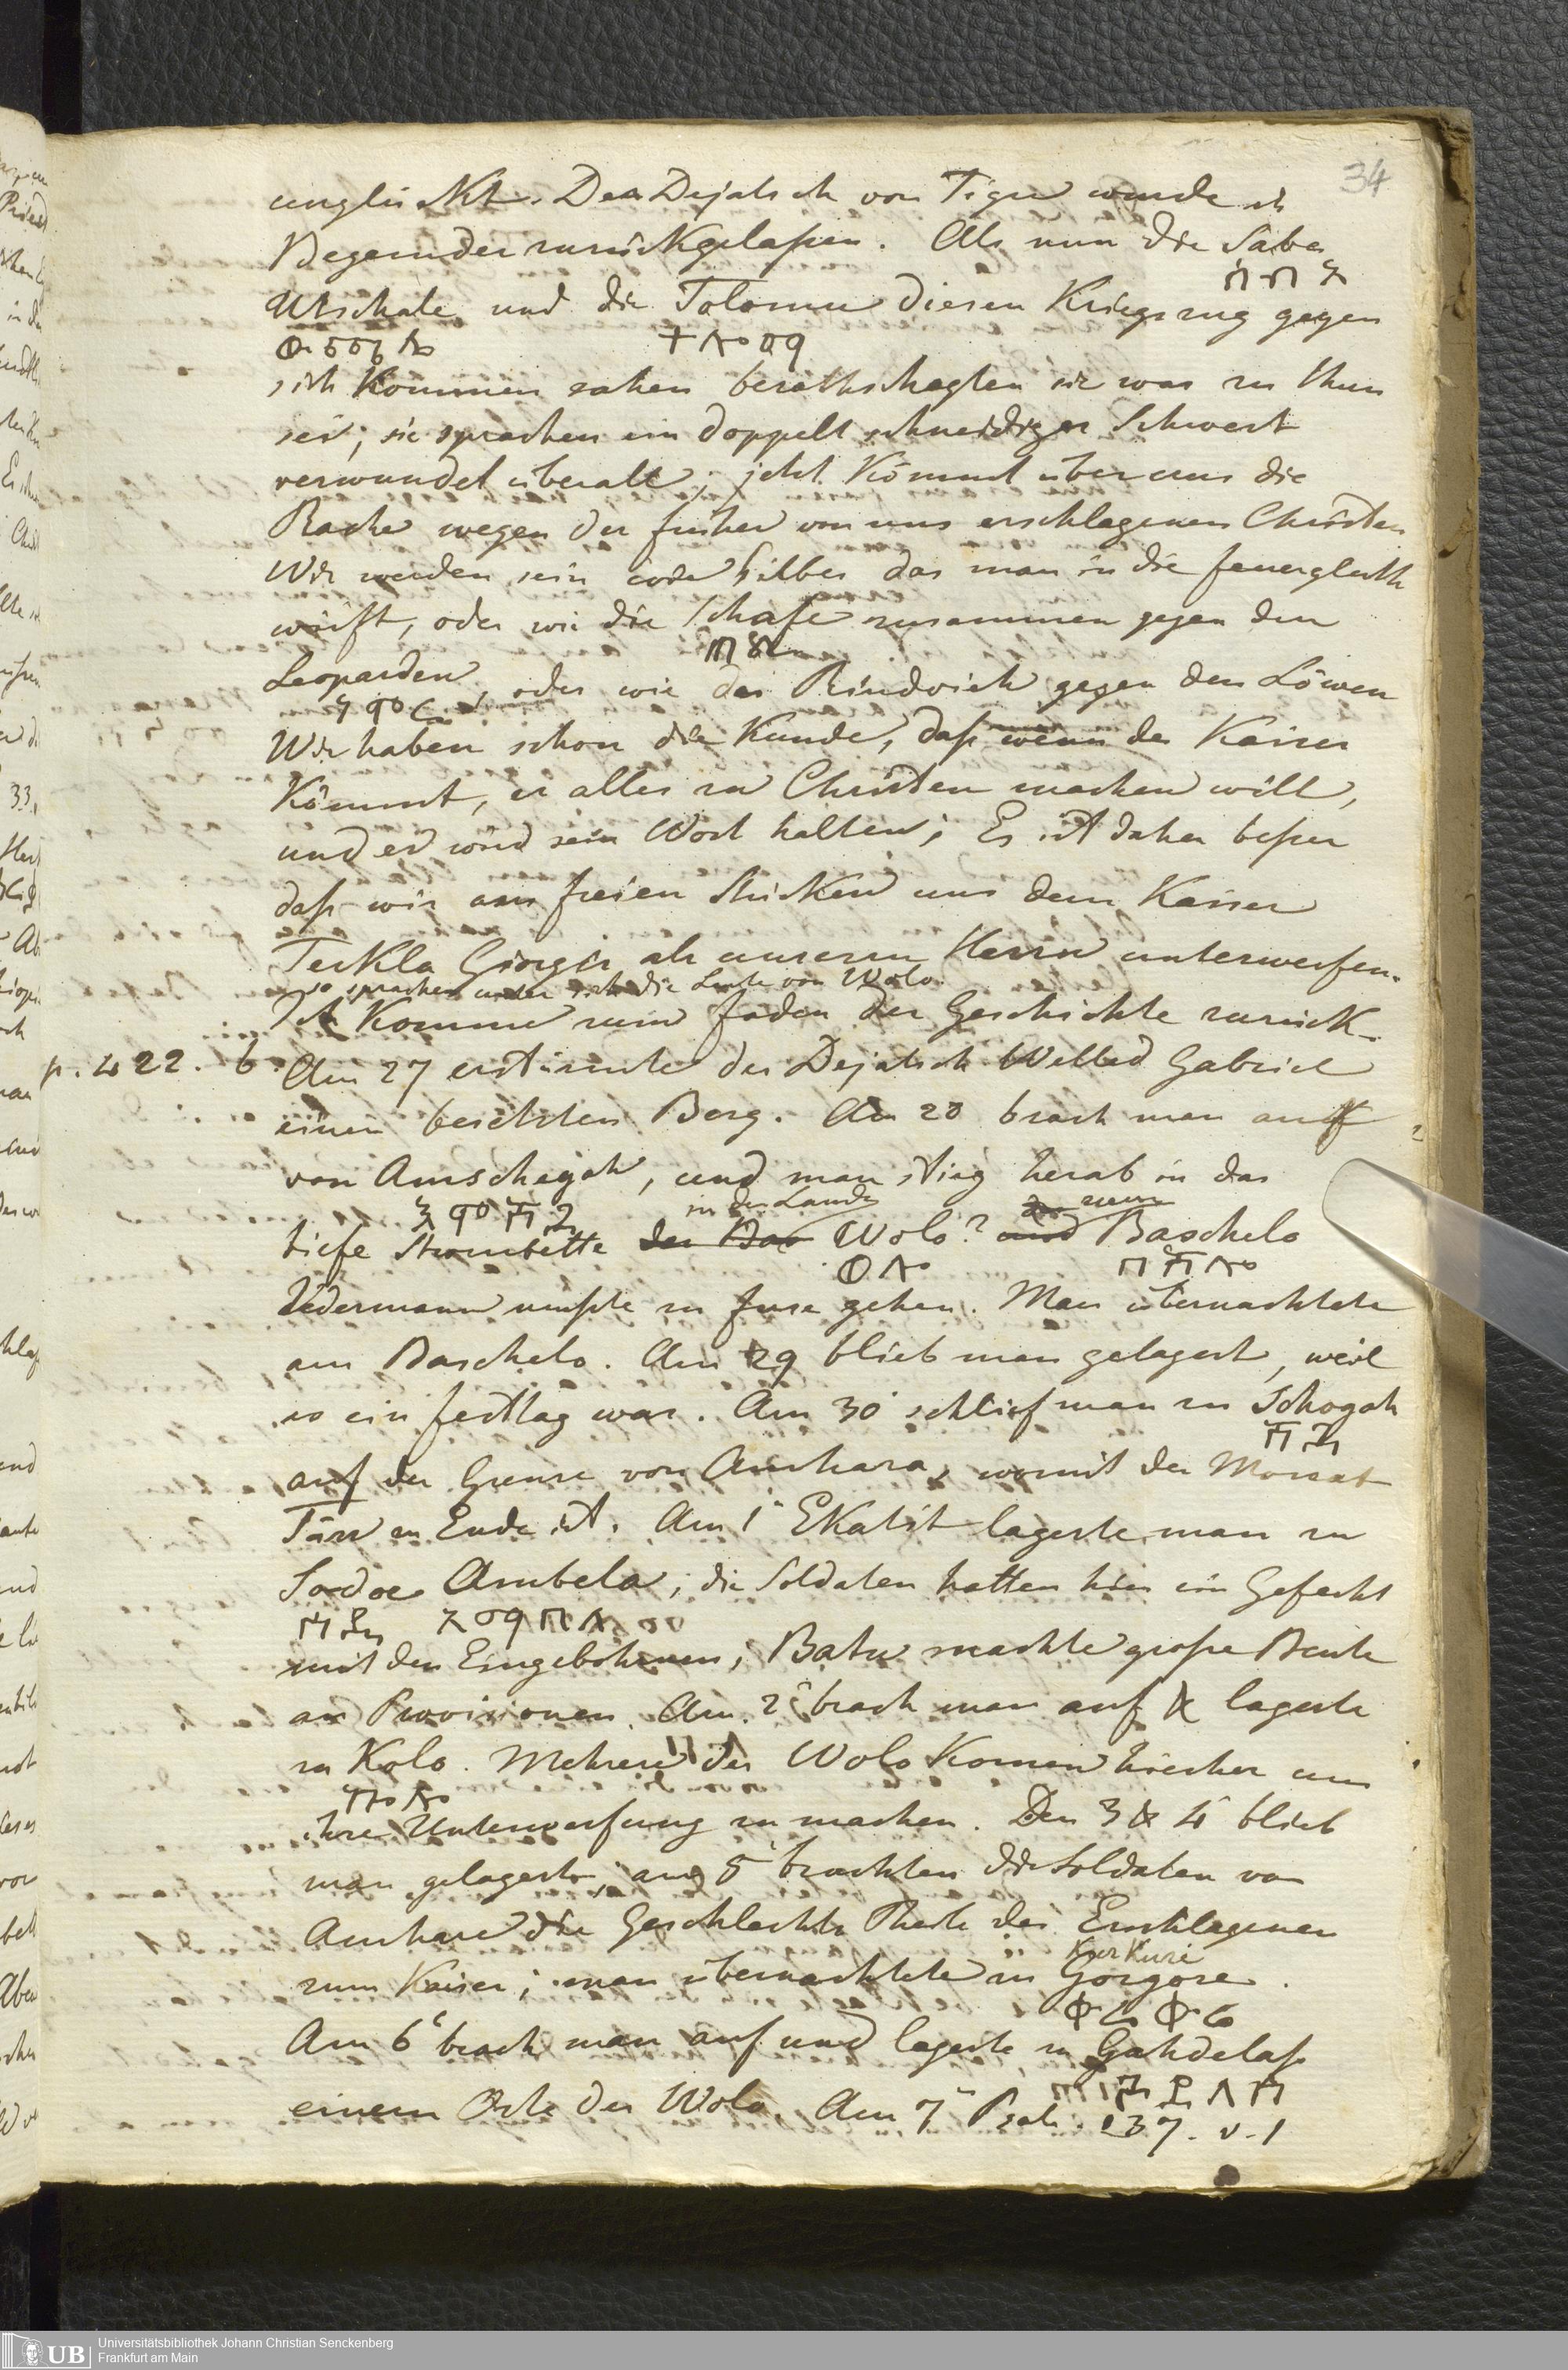 34
unglückt. Der Dejatsch von Tigre wurde in
Begemder zurückgelaßen. Als nun die Saba
ሰበን
Utschale und die Tolomu diesen Kriegszug gegen
ውጫሌ ቶሎማ
sich Kommen sahen berathschagten sie was zu thun
sei; sie sprachen ein doppelt schneidiger Schwert
verwundet überall; jetzt Kömmt über uns die
Rache wegen der früher von uns erschlagenen Christen
Wir werden sein wie Silber das man in die feuergluth
wirft, oder wie die Schafe zusammen gegen den
በግዕ
Leoparden, oder wie das Rindvieh gegen den Löwen
ነምር
Wir haben schon die Kunde, daß wenn der Kaiser
Kömmt, er alles zu Christen machen will,
und er wird sein Wort halten; Es ist daher beßer
daß wir aus freien Stücken uns dem Kaiser
Tekla Giorgis als unserem Herrn unterwerfen.
so sprachen unter sich die Leute von Wolo.
Ich Komme zum Faden der Geschichte zurück.
p. 422. b. Am 27 erstürmte der Dejatsch Welled Gabriel
einen besetzten Berg. Am 28 brach man auf
von Amschegah, und man stieg herab in das
እምሻጋ in der Lande zum
tiefe Strombette der Bas Wolo? und Baschelo
ወሎ በሽሎ
Jedermann mußte zu Fuse gehen. Man übernachtete
am Baschelo. Am 29 blieb man gelagert, weil
es ein festtag war. Am 30 schlief man zu Schogah
ሾጋ
auf der Grenze von Amhara, womit der Monat
Tärr zu Ende ist. Am 1" Ekatit lagerte man zu
Sadoe Ambela; die Soldaten hatten hier ein Gefecht
ሰዴ አማበላ
mit den Eingebohrnen; Batu machte große Beute
an Provisionen. Am. 2" brach man auf & lagerte
zu Kolo. Mehrere der Wolo Komen hierher um
ኮሎ
ihre Unterwerfung zu machen. Den 3 & 4" blieb
man gelagert; am 5" brachten die Soldaten von
Amhara die Geschlechts Theile der Erschlagenen
KurKuré
zum Kaiser; man übernachtete in Gorgore.
ቍርቍሬ
Am 6" brach man auf und lagerte zu Gahdelaß
ጋዴላስ
einem Orte der Wolo. Am 7" Psalm. 137. v. 1
UB Universitätsbibliothek Johann Christian Senckenberg
Frankfurt am Main